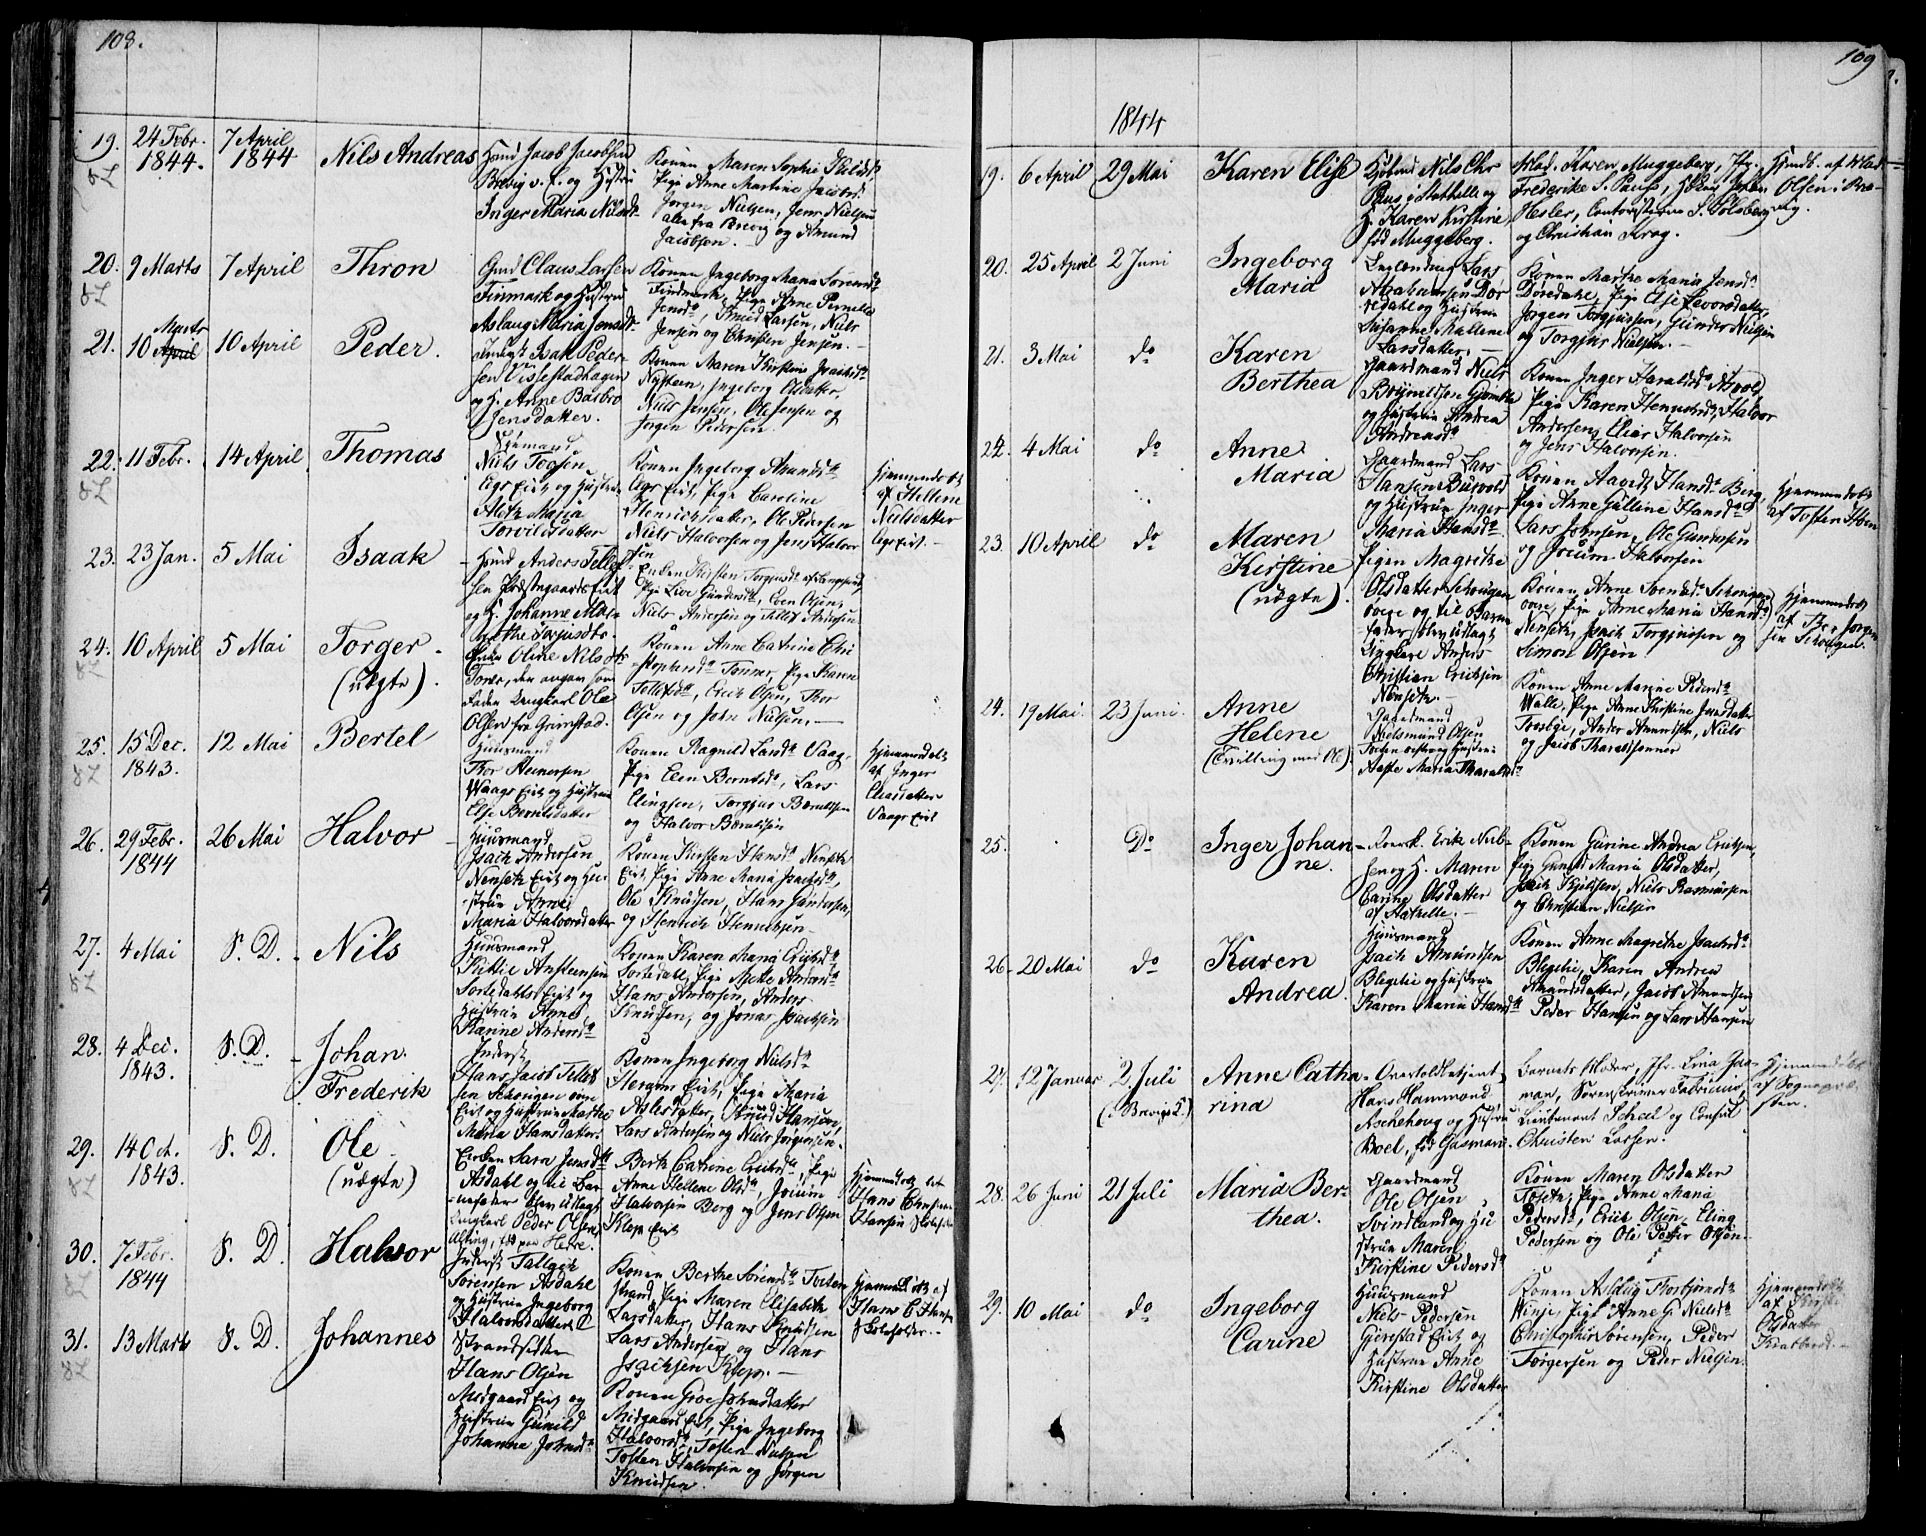 108.
19. 24 Febr. 1844. 7 April 1844 Nils Andreas
Huusmd Jacob Jacobsen
Brevig v. E. og Hustru
Inger Maria Nilsdt.
Konen Maren Sophie
Pige Anne Martine Jacobsd.
Jørgen Nielsen, Jens Nielsen
alle fra Brevig og Amund
Jacobsen.
20. 9 Marts 7 April Thron
Claus Larsen
Finmark og Hustru
Aslaug Maria Jensdt.
Konen Ingeborg Maria Sørensdr
Findmark, Pige Anne Pernelle
Jensdr, Knud Larsen, Niels
Jensen og Christen Jensen.
21. 10 Marts April 10 April Peder.
Isak Peder-
sen Vissestadhagen
og H. Anne Barbro
Jensdatter.
Konen Maren Kirstine Isachsdr
Nysteen, Ingeborg Olsdatter,
Niels Jensen, Ole Jensen og
Jørgen Pedersen.
22. 11 Febr. 14 April Thomas
Huusmand
Niels
og Hustrue
Maria
Torvildsdatter
Konen Ingeborg Amundsdr
Pige Caroline
Henrichsdatter, Ole Pedersen
Niels Halvorsen og Jens Halvor
sen
Hjemmedøbt
af Hellene
Nielsdatter
23. 23 Jan. 5 Mai Isaak
Huusmd Anders Tellef-
sen Præstegaards Eiet
og H. Johanne Mar-
grethe Torjusdtr.
Enken Kirsten Torgjusdr
Pige Live Gundersdr, Even Olsen,
Niels Andersen og Tellef Andersen
24. 10 April 5 Mai Torger (uægte).
Enke Oline Nilsdtr.
som
Fader Ungkarl Ole
Olsen fra Grimstad.
Konen Anne Catrine Chri
stophersdr Tonner, Pige Karen
Tellefsdr, Erich Olsen, Thor
Olsen og John Nielsen.
25. 15 Dec. 1843. 12 Mai Bertel
Huusmand
Thor Reinersen
Waags Eiet og Hustrue
Else Berntsdatter
Konen Ragnild Larsdr Vaag,
Pige Elen Berntsdr, Lars
Elingsen, Torgjus Berntsen
og Halvor Berntsen
Hjemmedøbt
af Inger
Eliasdatter
Vaags Eiet
26. 29 Febr. 1844 26 Mai Halvor
Huusmand
Isach Andersen
Nenseth Eiet og Hu-
strue Anne
Maria Halvorsdatter
Konen Kirsten Hansdr Nenseth
Eiet, Pige Anne Maria Isachsdr,
Ole Knudsen, Hans Gundersen,
og Henrich Henrichsen
27. 4 Mai S. D. Nils
Huusmand
Kittil Anstensen
Sortedahls Eiet og
Hustrue Anne
Karine Andersdr
Konen Karen Maria Erichsdr
Sortedahl, Pige Mette Andersdr
Hans Andersen, Anders
Knudsen, og Jonas Isachsen
28. 4 Dec. 1843. S. D. Johan Frederik
Inderst
Hans Jacob Tellef
sen Schougen øvre
Eiet og Hustrue Marthe
Maria Hansdatter.
Konen Ingeborg Nielsdr
Eiet, Pige Maria
Aslesdatter, Knud Hansen,
Lars Andersen og Niels Jørgensen.
29. 14 Oct. 1843. S. D. Ole (uægte)
Enken Sara Jensdr
Asdahl og til Bar-
nefader blev udlagt
Ungkarl Peder Olsen
Berth Catrine Erichsdr, Pige
Anne Hellene Olsdr, Joium
Halvorsen Berg og Jens Olsen
Klep Eiet
Hjemmedøbt ved
Hans Christian
Hansen Skoleholder
30. 7 Febr. 1844 S. D. Halvor
Inderst Tallev
Sørensen Asdahl
og Hustrue Ingeborg
Halvorsdatter
Konen Berthe Sørensdr
strand, Pige Maren Elisabeth
Larsdatter, Hans Knudsen
Lars Andersen og Hans
Isachsen Klep.
Hjemmedøbt af
Hans C. Hansen
Skoleholder.
31. 13 Marts S. D. Johannes
Strandsidder
Hans Olsen
Midgaard Eiet og
Hustrue Gunild
Johanna Johnsdr
Konen Groe Johnsdatter
Midgaard Eiet, Pige Ingeborg
Halvorsdr, Tosten Nielsen
Tosten Halvorsen og Jørgen
Knudsen.
109
1844
19. 6 April 29 Mai Karen Elise
Kjøbmd Nils Chr
Paus i Stathelle og
H. Karen Kirstine,
fød Muggeberg.
Mad. Karen Muggeberg, Jfr.
Frederikke S. Paus, John
Hesler, Contoristerne S. Solberg
og Christian Krog.
Hjemdb. af Mad
Olsen i Bre-
vig.
20. 25 April 2 Juni Ingeborg Maria
Lars
Abrahamsen Dør-
redahl og Hustrue
Susanne Mallene
Larsdatter.
Konen Marthe Maria Jensdr
Døredahl, Pige Else Levorsdatter,
Jørgen Torgjussen, Gunder Nielsen
og Torgjus Nielsen.
21. 3 Mai do Karen Berthea
Gaardmand Niels
Brynildsen Gjømle
og Hustrue Andrea
Andreasdr
Konen Inger Haraldsdr
Pige Karen Henrichsdr, Halvor
Andersen, Elias Halvorsen
og Jens Halvorsen.
22. 4 Mai do Anne Maria
Gaardmand Lars
Hansen
og Hustrue Inger
Maria Hansdr
Konen Aagodt Hansdr Berg
Pige Anne Gulline Hansdr
Lars Johnsen, Ole Gundersen
og Joium Halvorsen
Hjemmedøbt
af Tosten
23. 10 April do Maren Kirstine (uægte).
Pigen Magrethe
Olsdatter Schougen
øvre og til Barne-
fader blev udlagt
Ungkarl Anders
Christian Erichsen
Nenseth.
Konen Anne Svendsdr Schougen
øvre, Pige Anne Maria Hansdr
Nenseth, Isach Torgjussen og
Simon Olsen
Hjemmedøbt
af Jørgen
sen Schougen.
24. 19 Mai. 23 Juni. Anne Helene (Tvilling med Ole)
Gaardmand
Olsen
og Hustrue
Aaste Maria Tharaldsdr
Konen Anne Marine Pedersdr
Walle, Pige Anne Kirstine Jensdatter
Traasbye, Anders Amundsen, Niels
og Jacob Tharaldsønner
25. Do Inger Johan- ne.
Erik Niel-
sen og H. Maren
Carine Olsdatter
af Stathelle.
Konen Gurine Andrea Erichsen,
Pige Gunild Maria Olsdatter,
Isach Kjeldsen, Niels Rasmussen
og Christian Nielsen
26. 20 Mai do Karen Andrea
Huusmand
Isach Amundsen
Blegelie og Hustrue
Karen Maria Hansdr
Konen Anne Magrethe Isachsdr
Blegelie, Karen Andrea
Amundsdatter, Jacob Amundsen
Peder Hansen og Lars Hansen
27. 12 Januar 2 Juli (i Brevigs K.) Anne Catha- rina
Overtoldbetjent
Hans Hammond
Aschehoug og Hustru
Boel, født Gasman.
Barnets Moder, Jfr. Lina Gas-
man, Sorenskriver Fabricius,
Lieutenant Schou og Consul
Christen Larsen.
Hjemmedøbt
af Sognepræ-
sten.
28. 26 Juni 21 Juli Maria Ber- thea.
Gaardmand
Ole Olsen
Svindland og Hu
strue Maren
Kirstine Pedersdr
Konen Maren Olsdatter
Toseth, Pige Anne Maria
Pedersdr, Erich Olsen, Eling
Pedersen og Ole Peder Olsen.
29. 10 Mai do Ingeborg Carine
Huusmand
Niels Pedersen
Gjerestad Eiet og
Hustrue Anne
Kirstine Olsdatter
Konen Aslaug Thorbjørnsdr
Winje, Pige Anne G Nielsdr
Christopher Sørensen, Peder
Torgersen og Peder Nielsen.
Hjemmedøbt
af Kirsti
Olsdatter